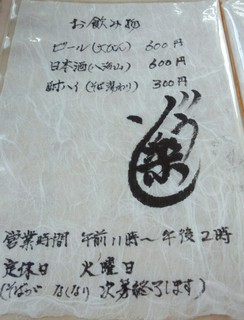 お飲み物
ビール(大びん) 600円
日本酒(八海山) 600円
酎ハイ(そば湯わり) 300円
楽
営業時間 午前11時〜午後2時
定休日 火曜日
(そばが なくなり 次第終了します)